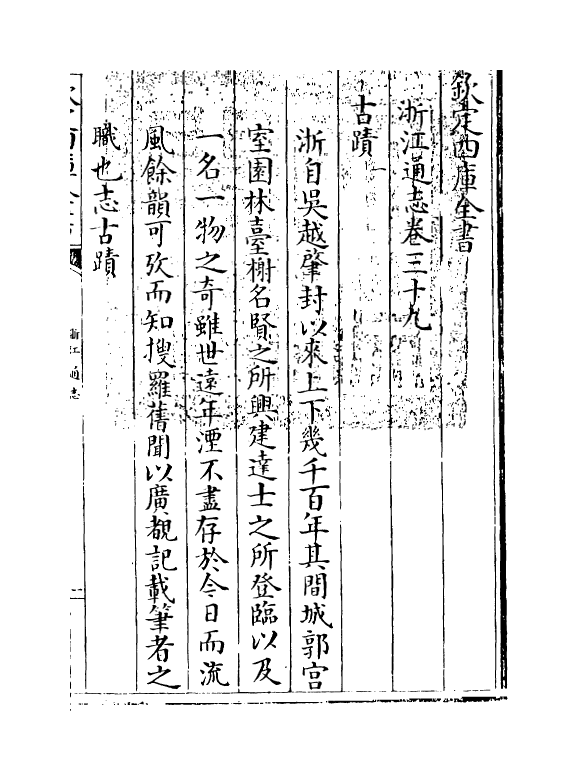 欽定四庫全書
浙江通志卷三十九
古蹟
浙自吳越肇封以來上下幾千百年其間城郭宫
室園林臺榭名賢之所興建達士之所登臨以及
一名一物之竒雖世遠年湮不盡存於今日而流
風餘韻可攷而知搜羅舊聞以廣覩記載筆者之
職也志古蹟
浙江通志